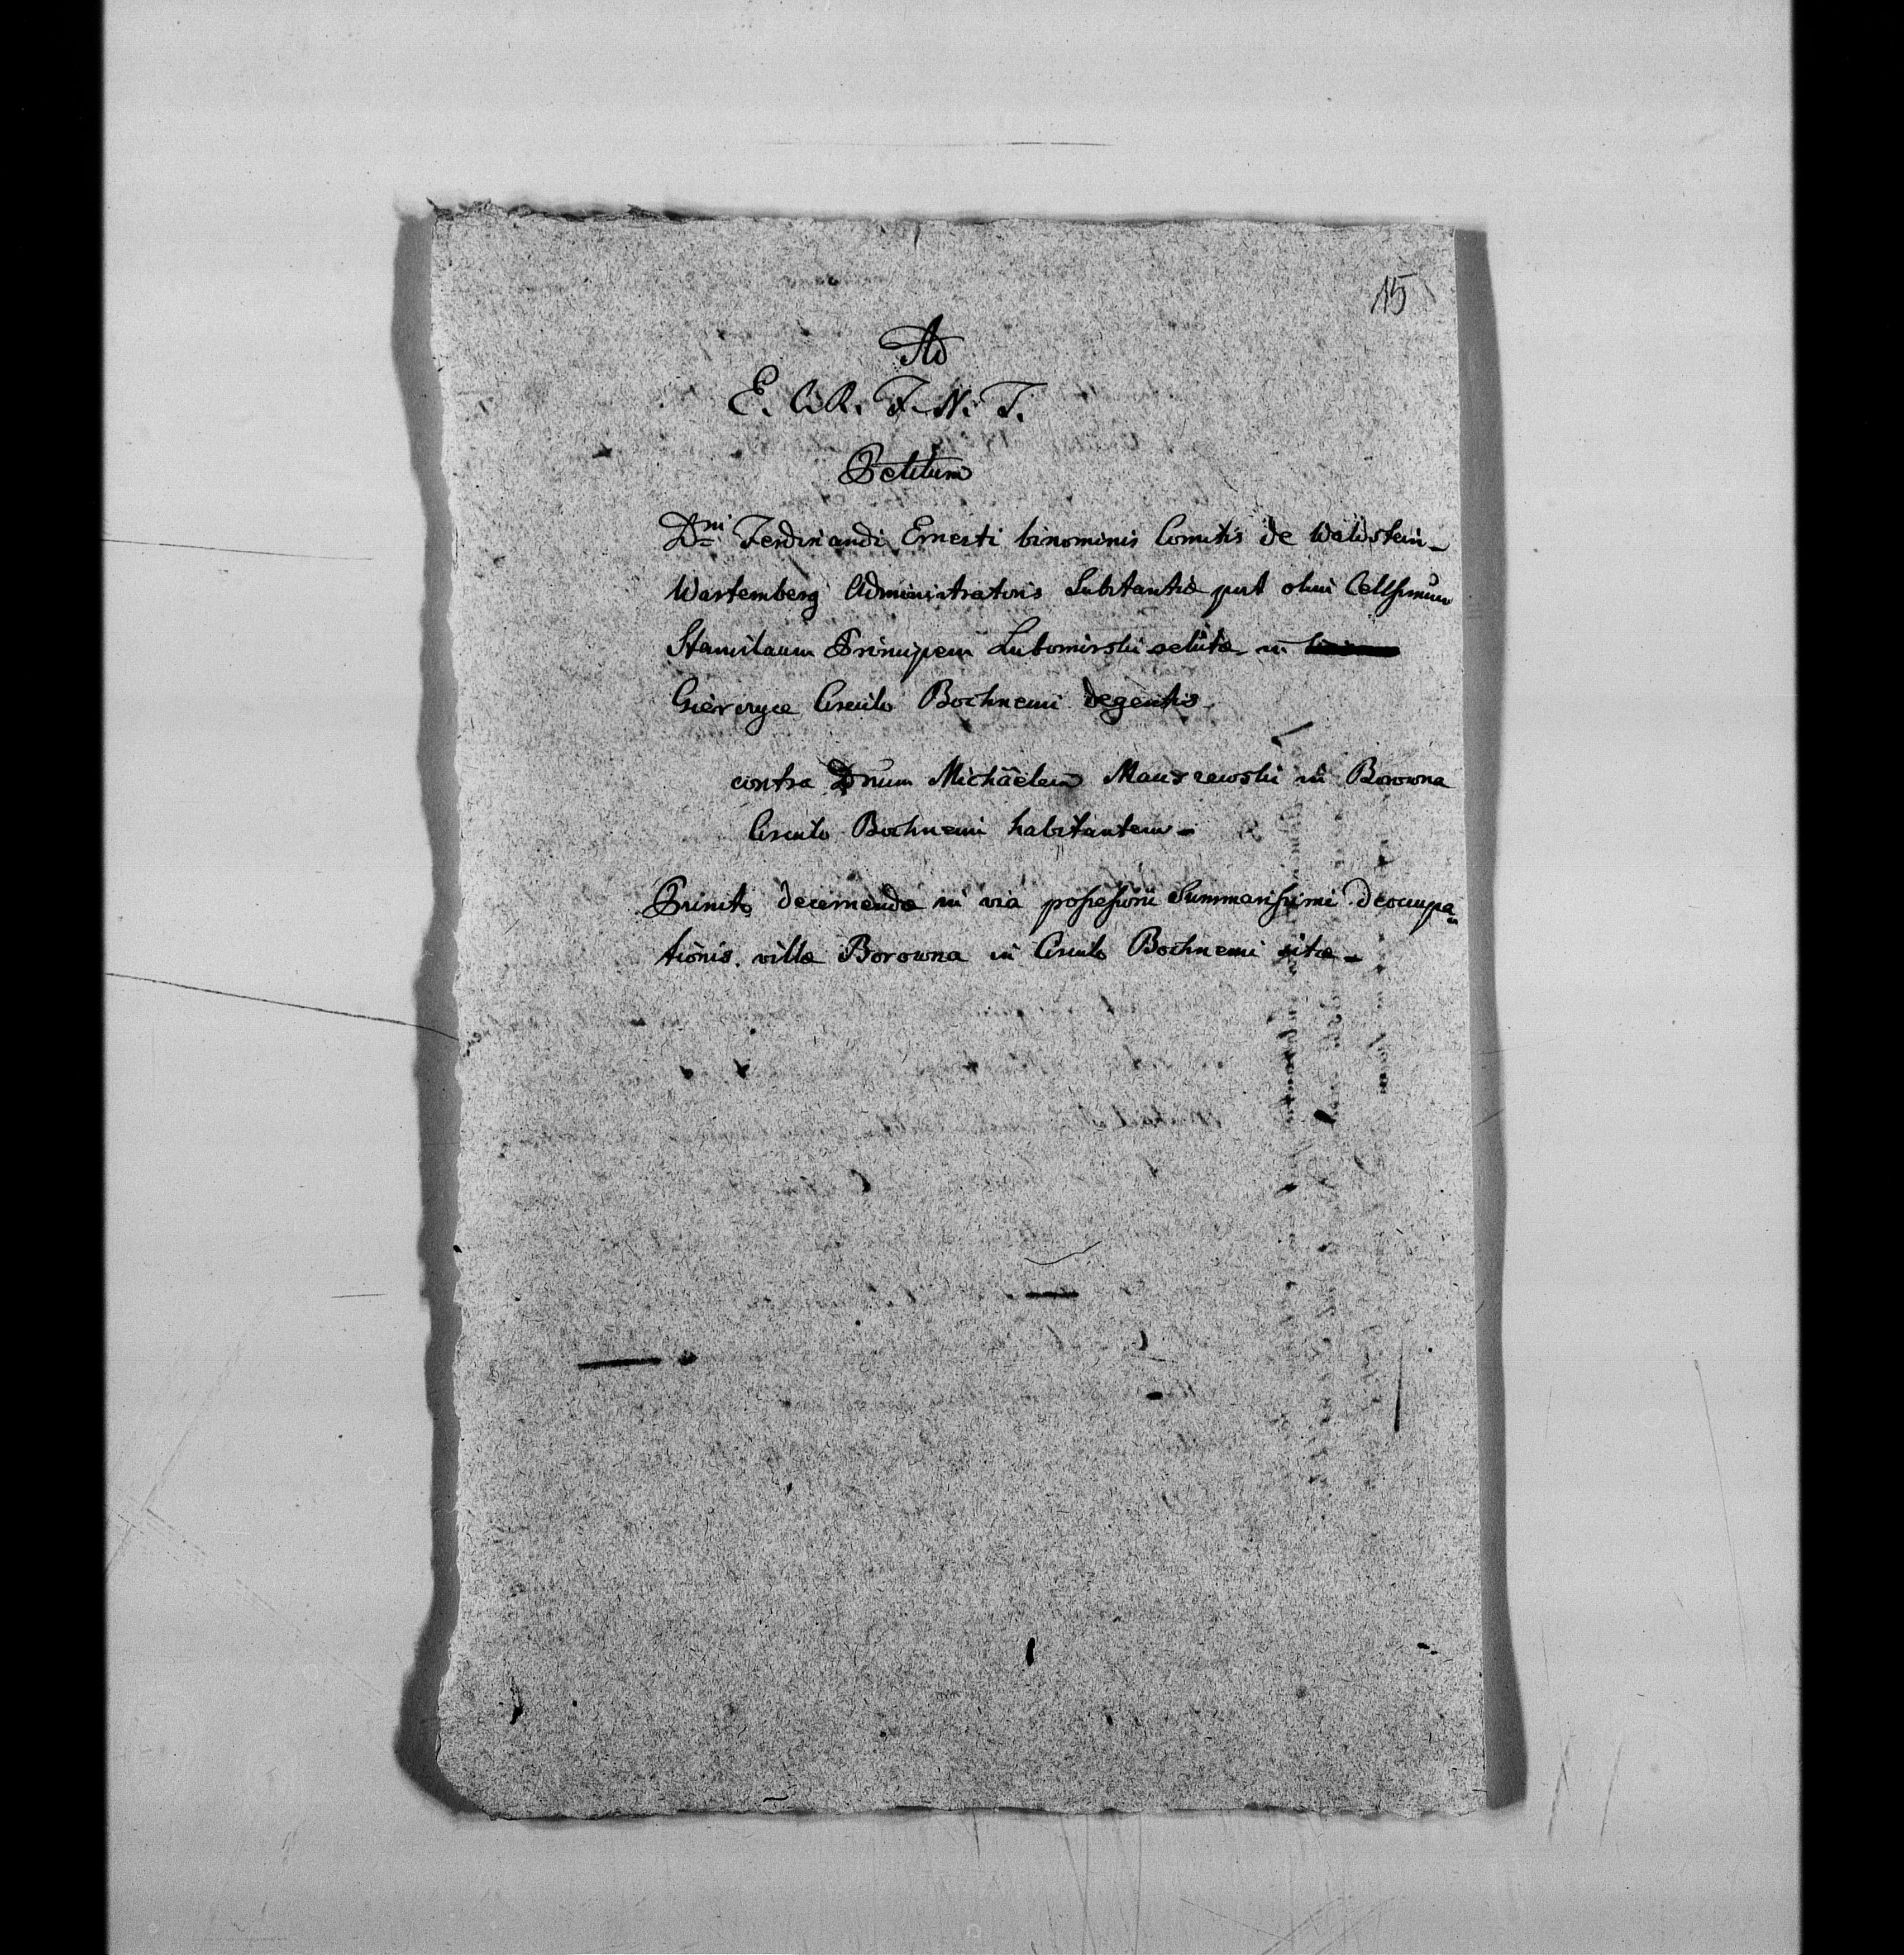 15
Ad
E. C. R. F. N. T.
Petitum
Dni Ferdinandi Ernesti binominis Comitis de Waldstein-
Wartemberg Administratoris Substantiæ post olim Celsissimum
Stanislaum Principem Lubomirski relictæ in
Circulo Bochnensi degentis
contra Dnum Michäelem in Borowna
Circulo Bochnensi habitantem -
Puncto decernendæ in via possessorii Summarissimi deoccupa-
tionis villæ Borowna in Circulo Bochnensi sitæ -